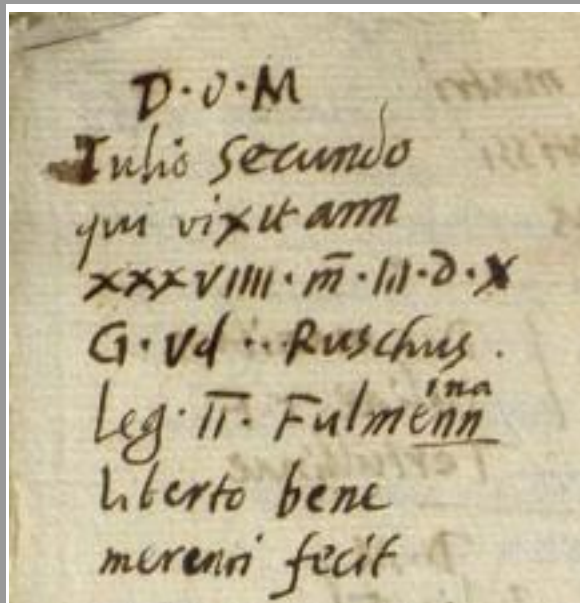 D·O·M
Iulio Secundo
qui vixit ann
xxxviiii·m̄·iii·d·x
G·Vd··Ruschus.
Leg·II·Fulmenn
ina
liberto bene
merenti fecit